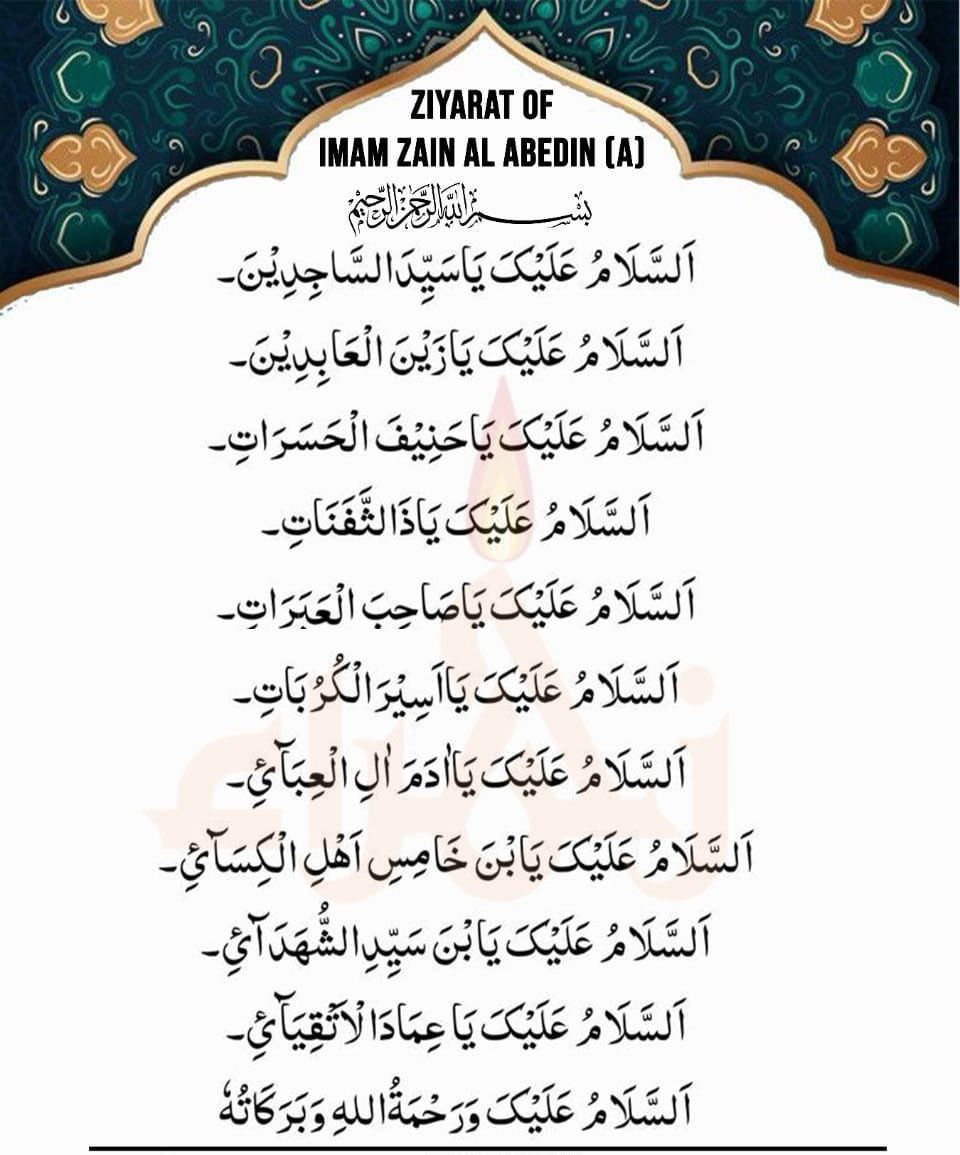 ZIYARAT OF
IMAM ZAIN AL ABEDIN (A)
بسم الله الرحمن الرحيم
اَلسَّلَامُ عَلَیْکَ یَاسَیِّدَ السَّاجِدِیْنَ۔
اَلسَّلَامُ عَلَیْکَ یَازَیْنَ الْعَابِدِیْنَ۔
اَلسَّلَامُ عَلَیْکَ یَاحَنِیْفَ الْحَسَرَاتِ۔
اَلسَّلَامُ عَلَیْکَ یَاذَالثَّفَنَاتِ۔
اَلسَّلَامُ عَلَیْکَ یَاصَاحِبَ الْعَبَرَاتِ۔
اَلسَّلَامُ عَلَیْکَ یَااَسِیْرَ الْکُرُبَاتِ۔
اَلسَّلَامُ عَلَیْکَ یَااٰدَمَ اٰلِ الْعِبَآئِ۔
اَلسَّلَامُ عَلَیْکَ یَابْنَ خَامِسِ اَھْلِ الْکِسَآئِ۔
اَلسَّلَامُ عَلَیْکَ یَابْنَ سَیِّدِالشُّھَدَآئِ۔
اَلسَّلَامُ عَلَیْکَ یَا عِمَادَالْاَتْقِیَآئِ۔
اَلسَّلَامُ عَلَیْکَ وَرَحْمَةُاللهِ وَبَرَکَاتُهٗ